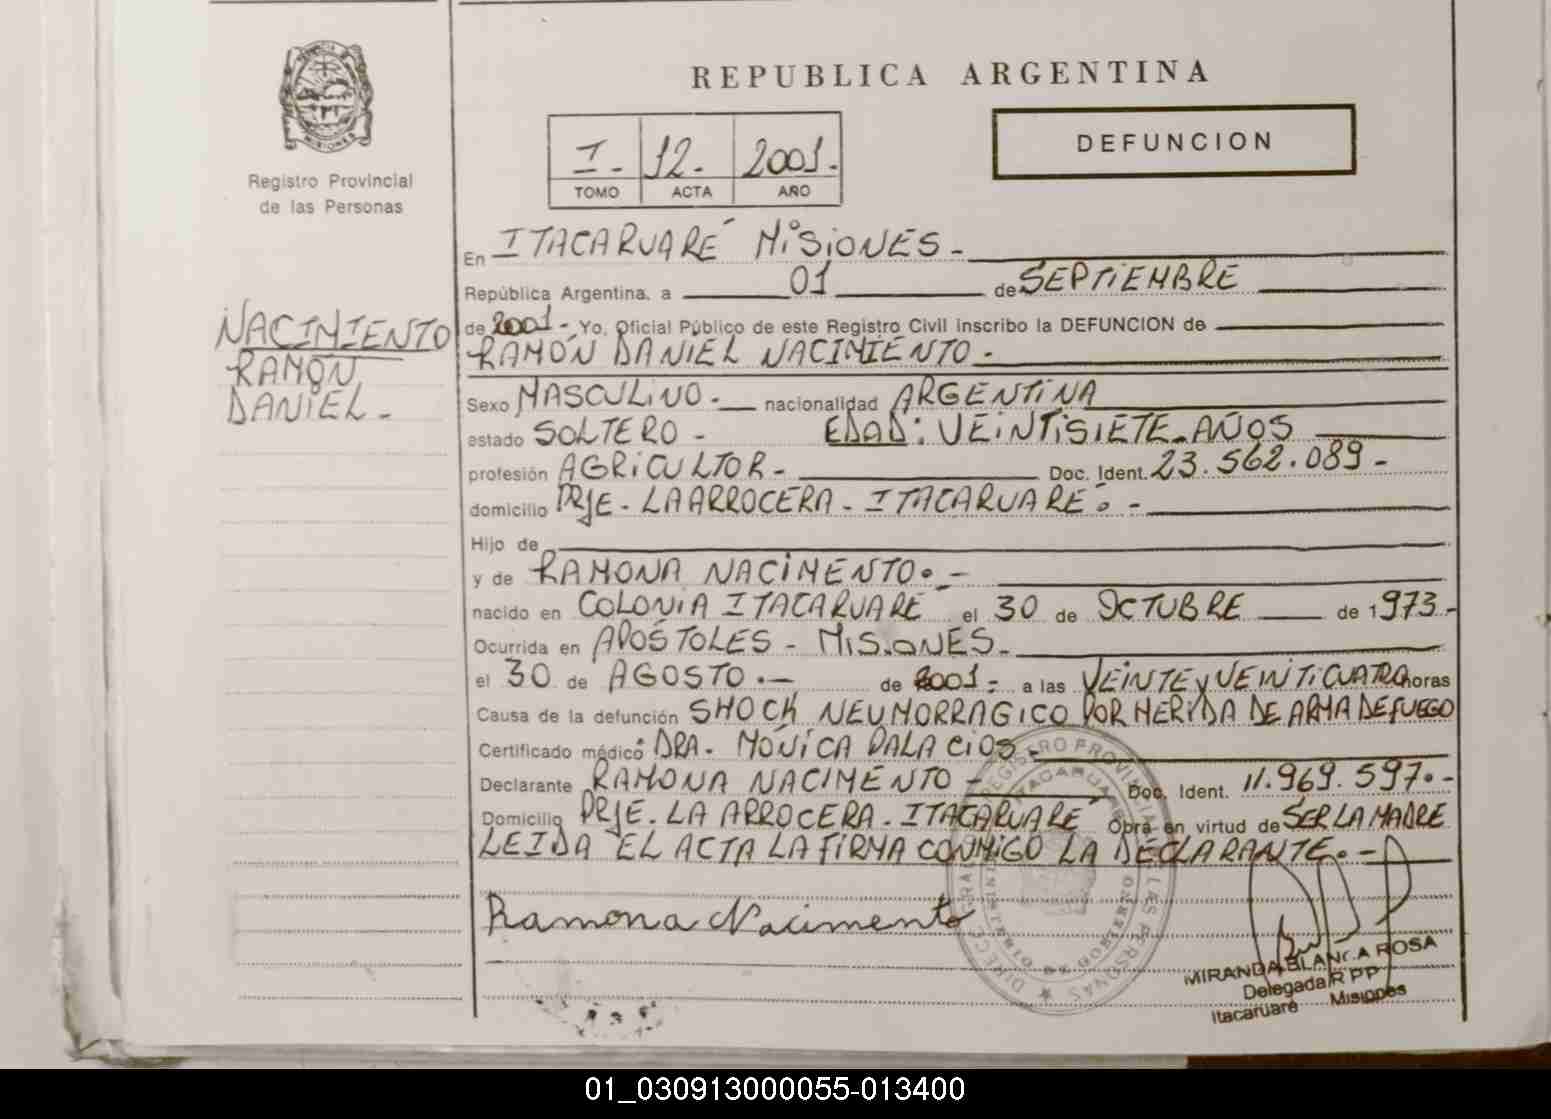 REPUBLICA ARGENTINA
I. 12. 2001.
TOMO ACTA AÑO
DEFUNCION
MISIONES
Registro Provincial
de las Personas
NACIMIENTO
RAMÓN
DANIEL.-
En ITACARUARÉ MISIONES-
República Argentina, a 01 de SEPTIEMBRE
de 2001- Yo, Oficial Público de este Registro Civil inscribo la DEFUNCION de
RAMÓN DANIEL NACIMIENTO.-
Sexo MASCULINO.- nacionalidad ARGENTINA
estado SOLTERO - EDAD: VEINTISIETE AÑOS
profesión AGRICULTOR- Doc. Ident. 23.562.089-
domicilio PRJE- LA ARROCERA- ITACARUARÉ.-
Hijo de
y de RAMONA NACIMENTO.-
nacido en COLONIA ITACARUARÉ el 30 de OCTUBRE de 1973-
Ocurrida en APÓSTOLES- MISIONES-
el 30 de AGOSTO.- de 2001- a las VEINTE y VEINTICUATRO horas
Causa de la defunción SHOCK NEUMORRAGICO POR HERIDA DE ARMA DE FUEGO
Certificado médico DRA. MÓNICA PALACIOS-
Declarante RAMONA NACIMENTO- Doc. Ident. 11.969.597.-
Domicilio PRJE. LA ARROCERA- ITACARUARÉ Obra en virtud de SER LA MADRE
LEIDA EL ACTA LA FIRMA CONMIGO LA DECLARANTE.-
Ramona Nacimento
MIRANDA BLANCA ROSA
Delegada R PP
Itacaruaré Misiones
01_030913000055-013400